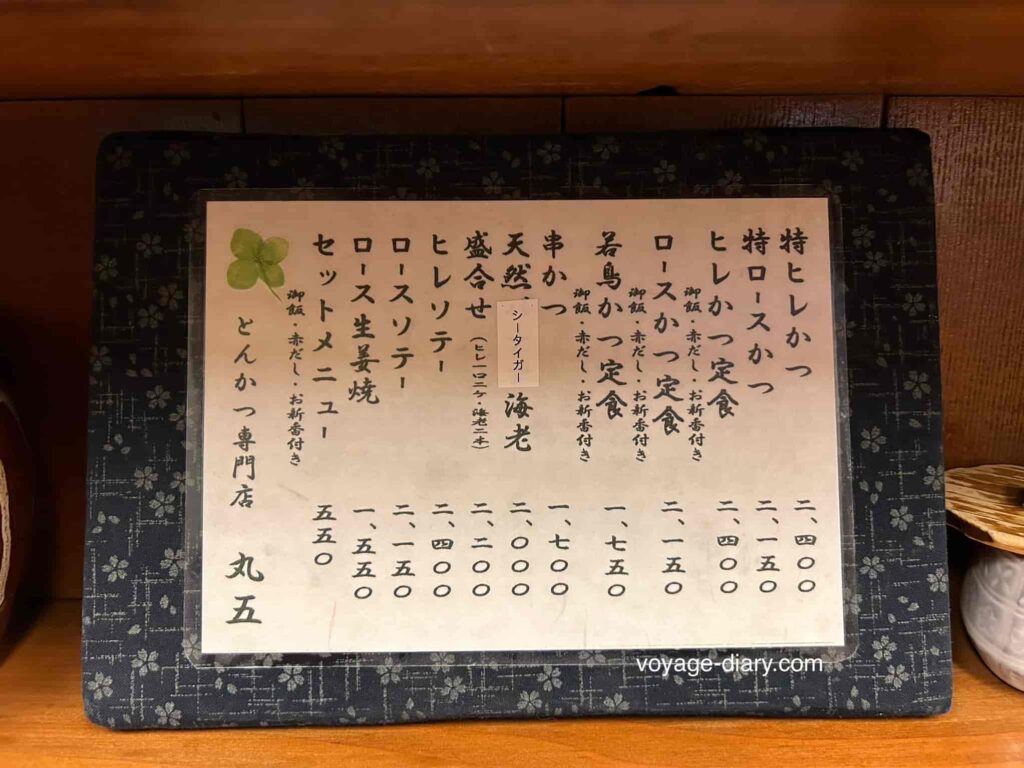 特ヒレかつ 二、四〇〇
特ロースかつ 二、一五〇
ヒレかつ定食 二、四〇〇
御飯・赤だし・お新香付き
ロースかつ定食 二、一五〇
御飯・赤だし・お新香付き
若鳥かつ定食 一、七五〇
御飯・赤だし・お新香付き
串かつ 一、七〇〇
天然、シータイガー海老 二、〇〇〇
盛合せ(ヒレ一口二ケ・海老二本) 二、二〇〇
ヒレソテー 二、四〇〇
ロースソテー 二、一五〇
ロース生姜焼 一、五五〇
セットメニュー 五五〇
御飯・赤だし・お新香付き
とんかつ専門店 丸五
voyage-diary.com